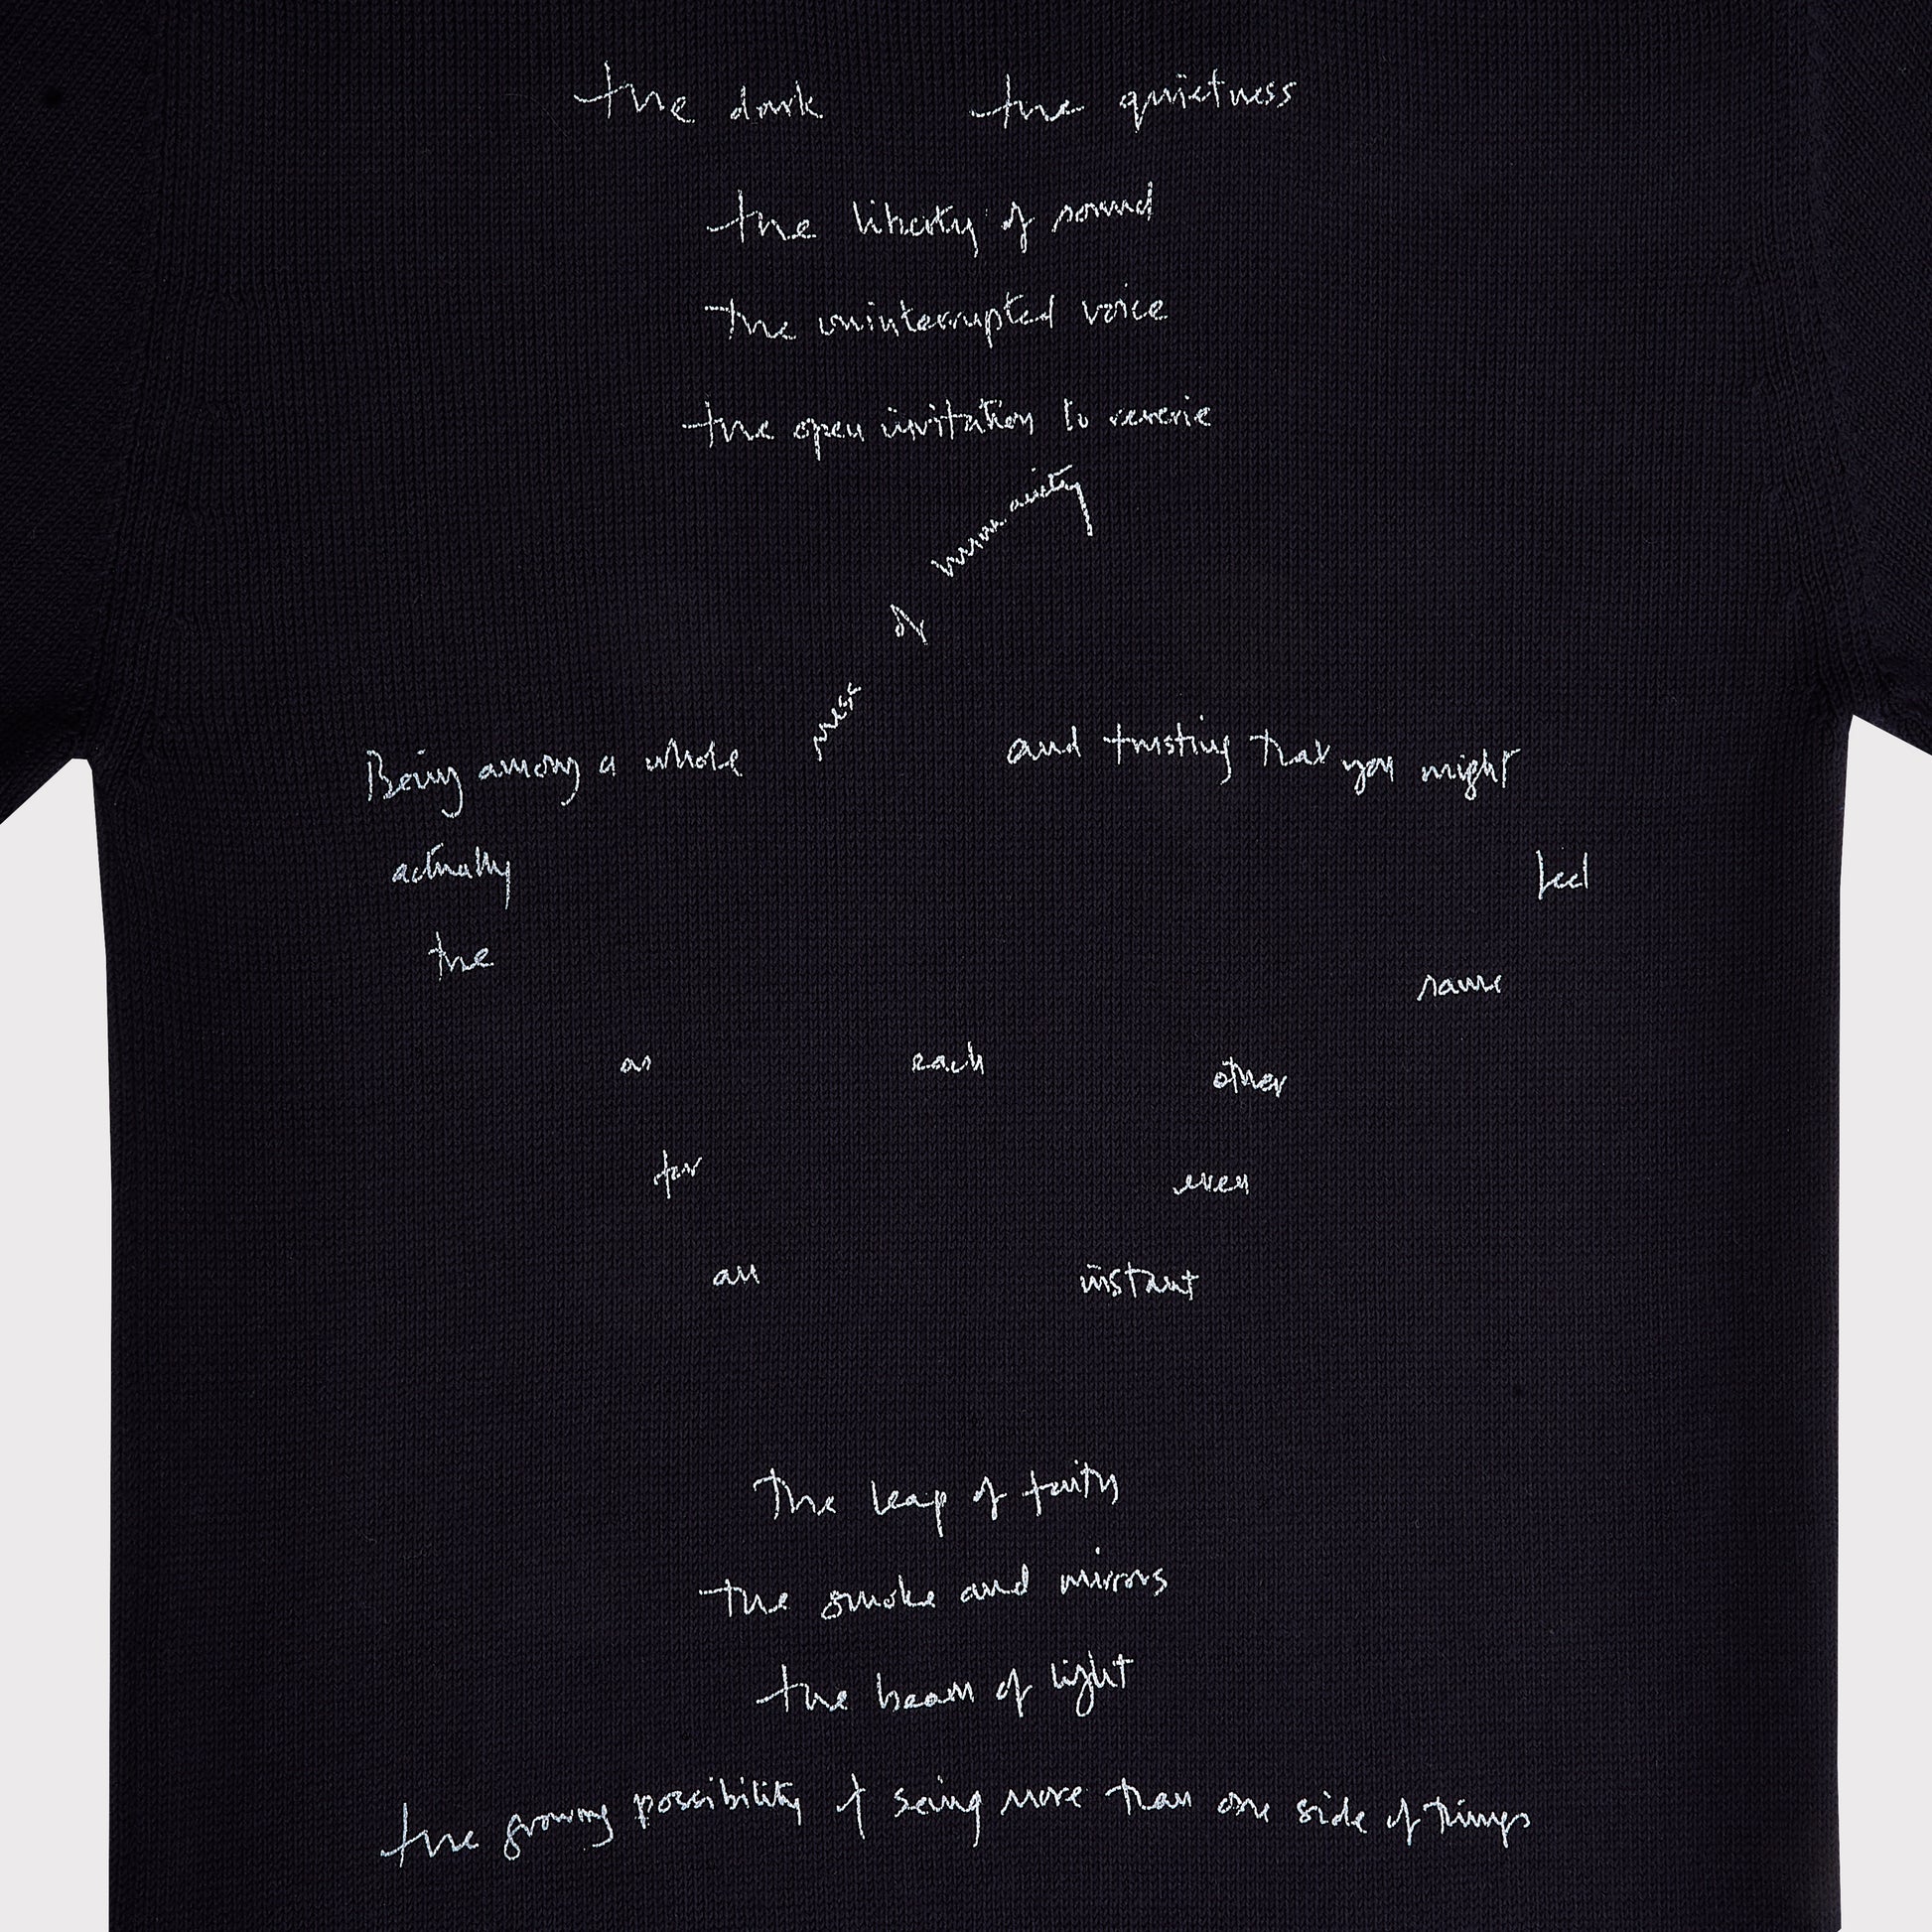 the dark the quietness
the liberty of sound
the uninterrupted voice
the open invitation to reverie
Being among a whole mess of humanity and trusting that you might
actually feel
the same
as each other
for even
an instant
The leap of faith
the smoke and mirrors
the beam of light
the growing possibility of seeing more than one side of things